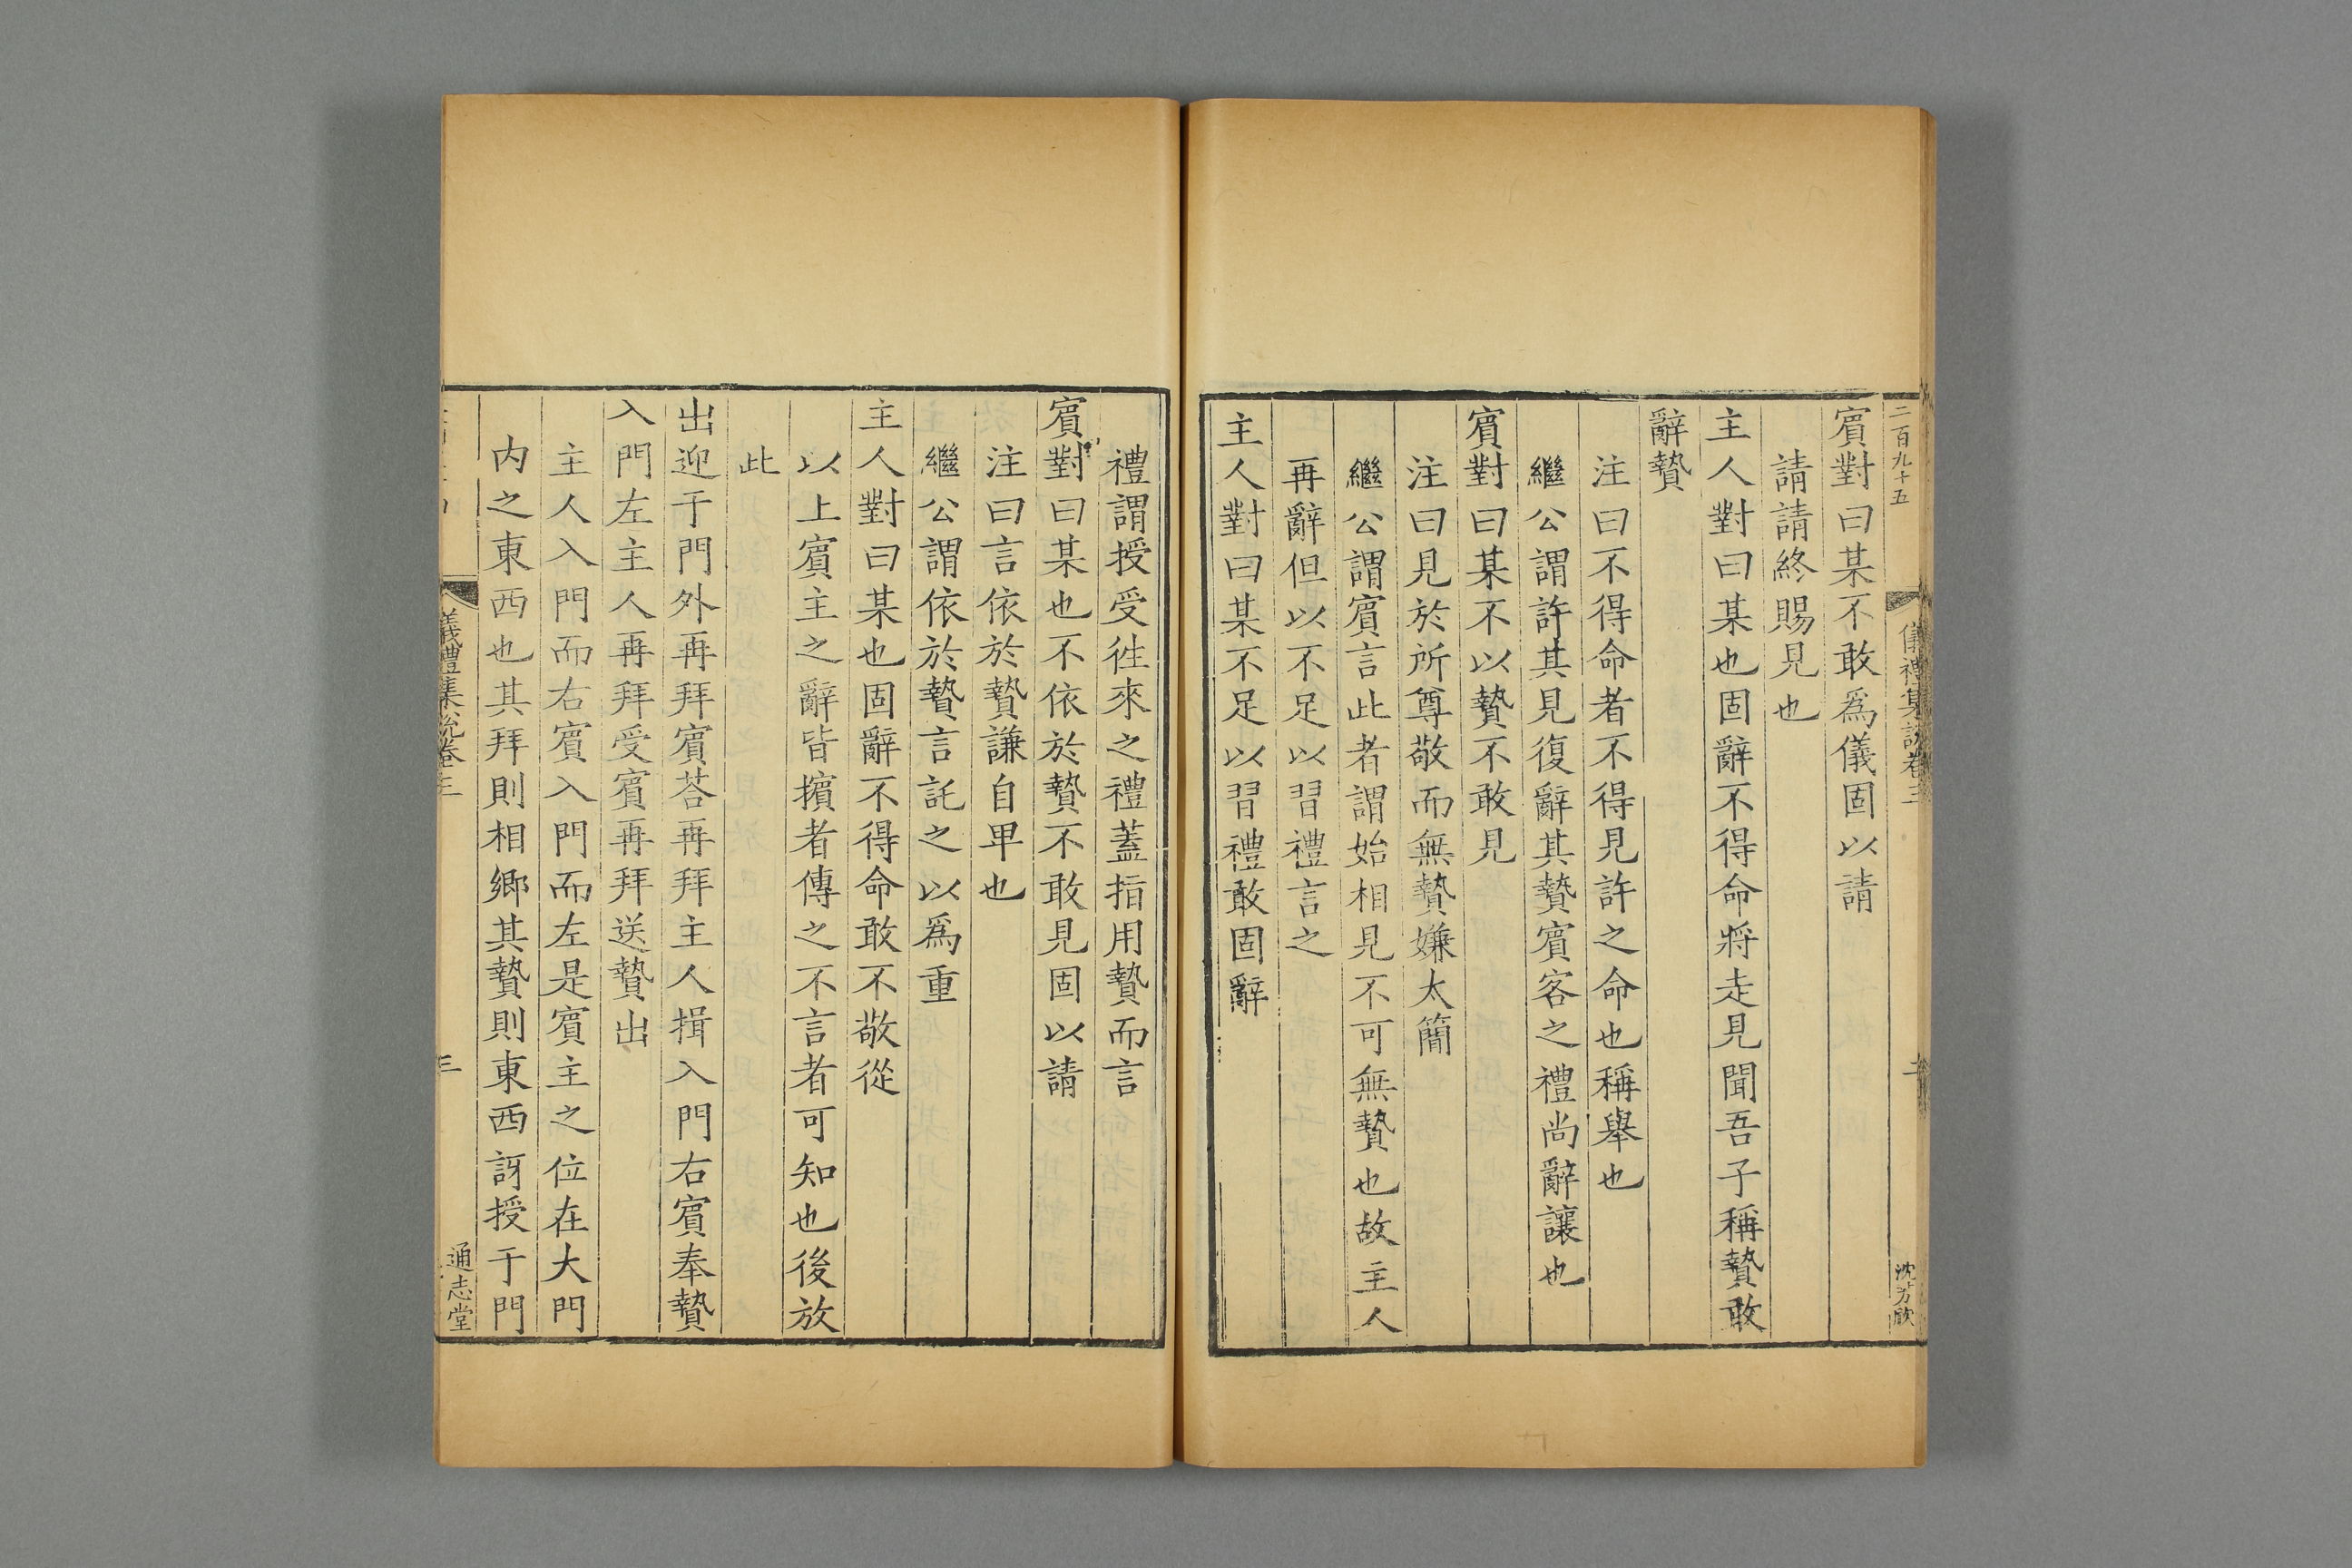 二百九十五
儀禮集說卷三
二
沈芳欣
賓對曰某不敢爲儀固以請
請請終賜見也
主人對曰某也固辭不得命將走見聞吾子稱贄敢
辭贄
注曰不得命者不得見許之命也稱舉也
繼公謂許其見復辭其贄賓客之禮尚辭讓也
賓對曰某不以贄不敢見
注曰見於所尊敬而無贄嫌太簡
繼公謂賓言此者謂始相見不可無贄也故主人
再辭但以不足以習禮言之
主人對曰某不足以習禮敢固辭
禮謂授受徃來之禮蓋指用贄而言
賓對曰某也不依於贄不敢見固以請
注曰言依於贄謙自卑也
繼公謂依於贄言託之以爲重
主人對曰某也固辭不得命敢不敬從
以上賓主之辭皆擯者傳之不言者可知也後放
此
出迎于門外再拜賓荅再拜主人揖入門右賓奉贄
入門左主人再拜受賓再拜送贄出
主人入門而右賓入門而左是賓主之位在大門
内之東西也其拜則相鄉其贄則東西訝授于門
儀禮集說卷三
三
通志堂